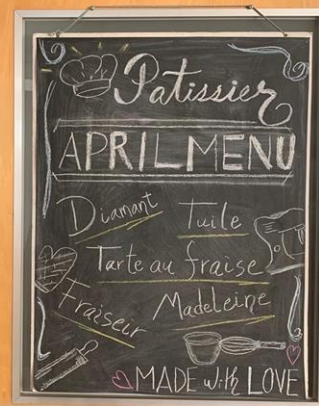 Patissier
APRIL MENU
Diamant Tuile
Tarte au fraise
Fraiseur Madeleine
MADE with LOVE